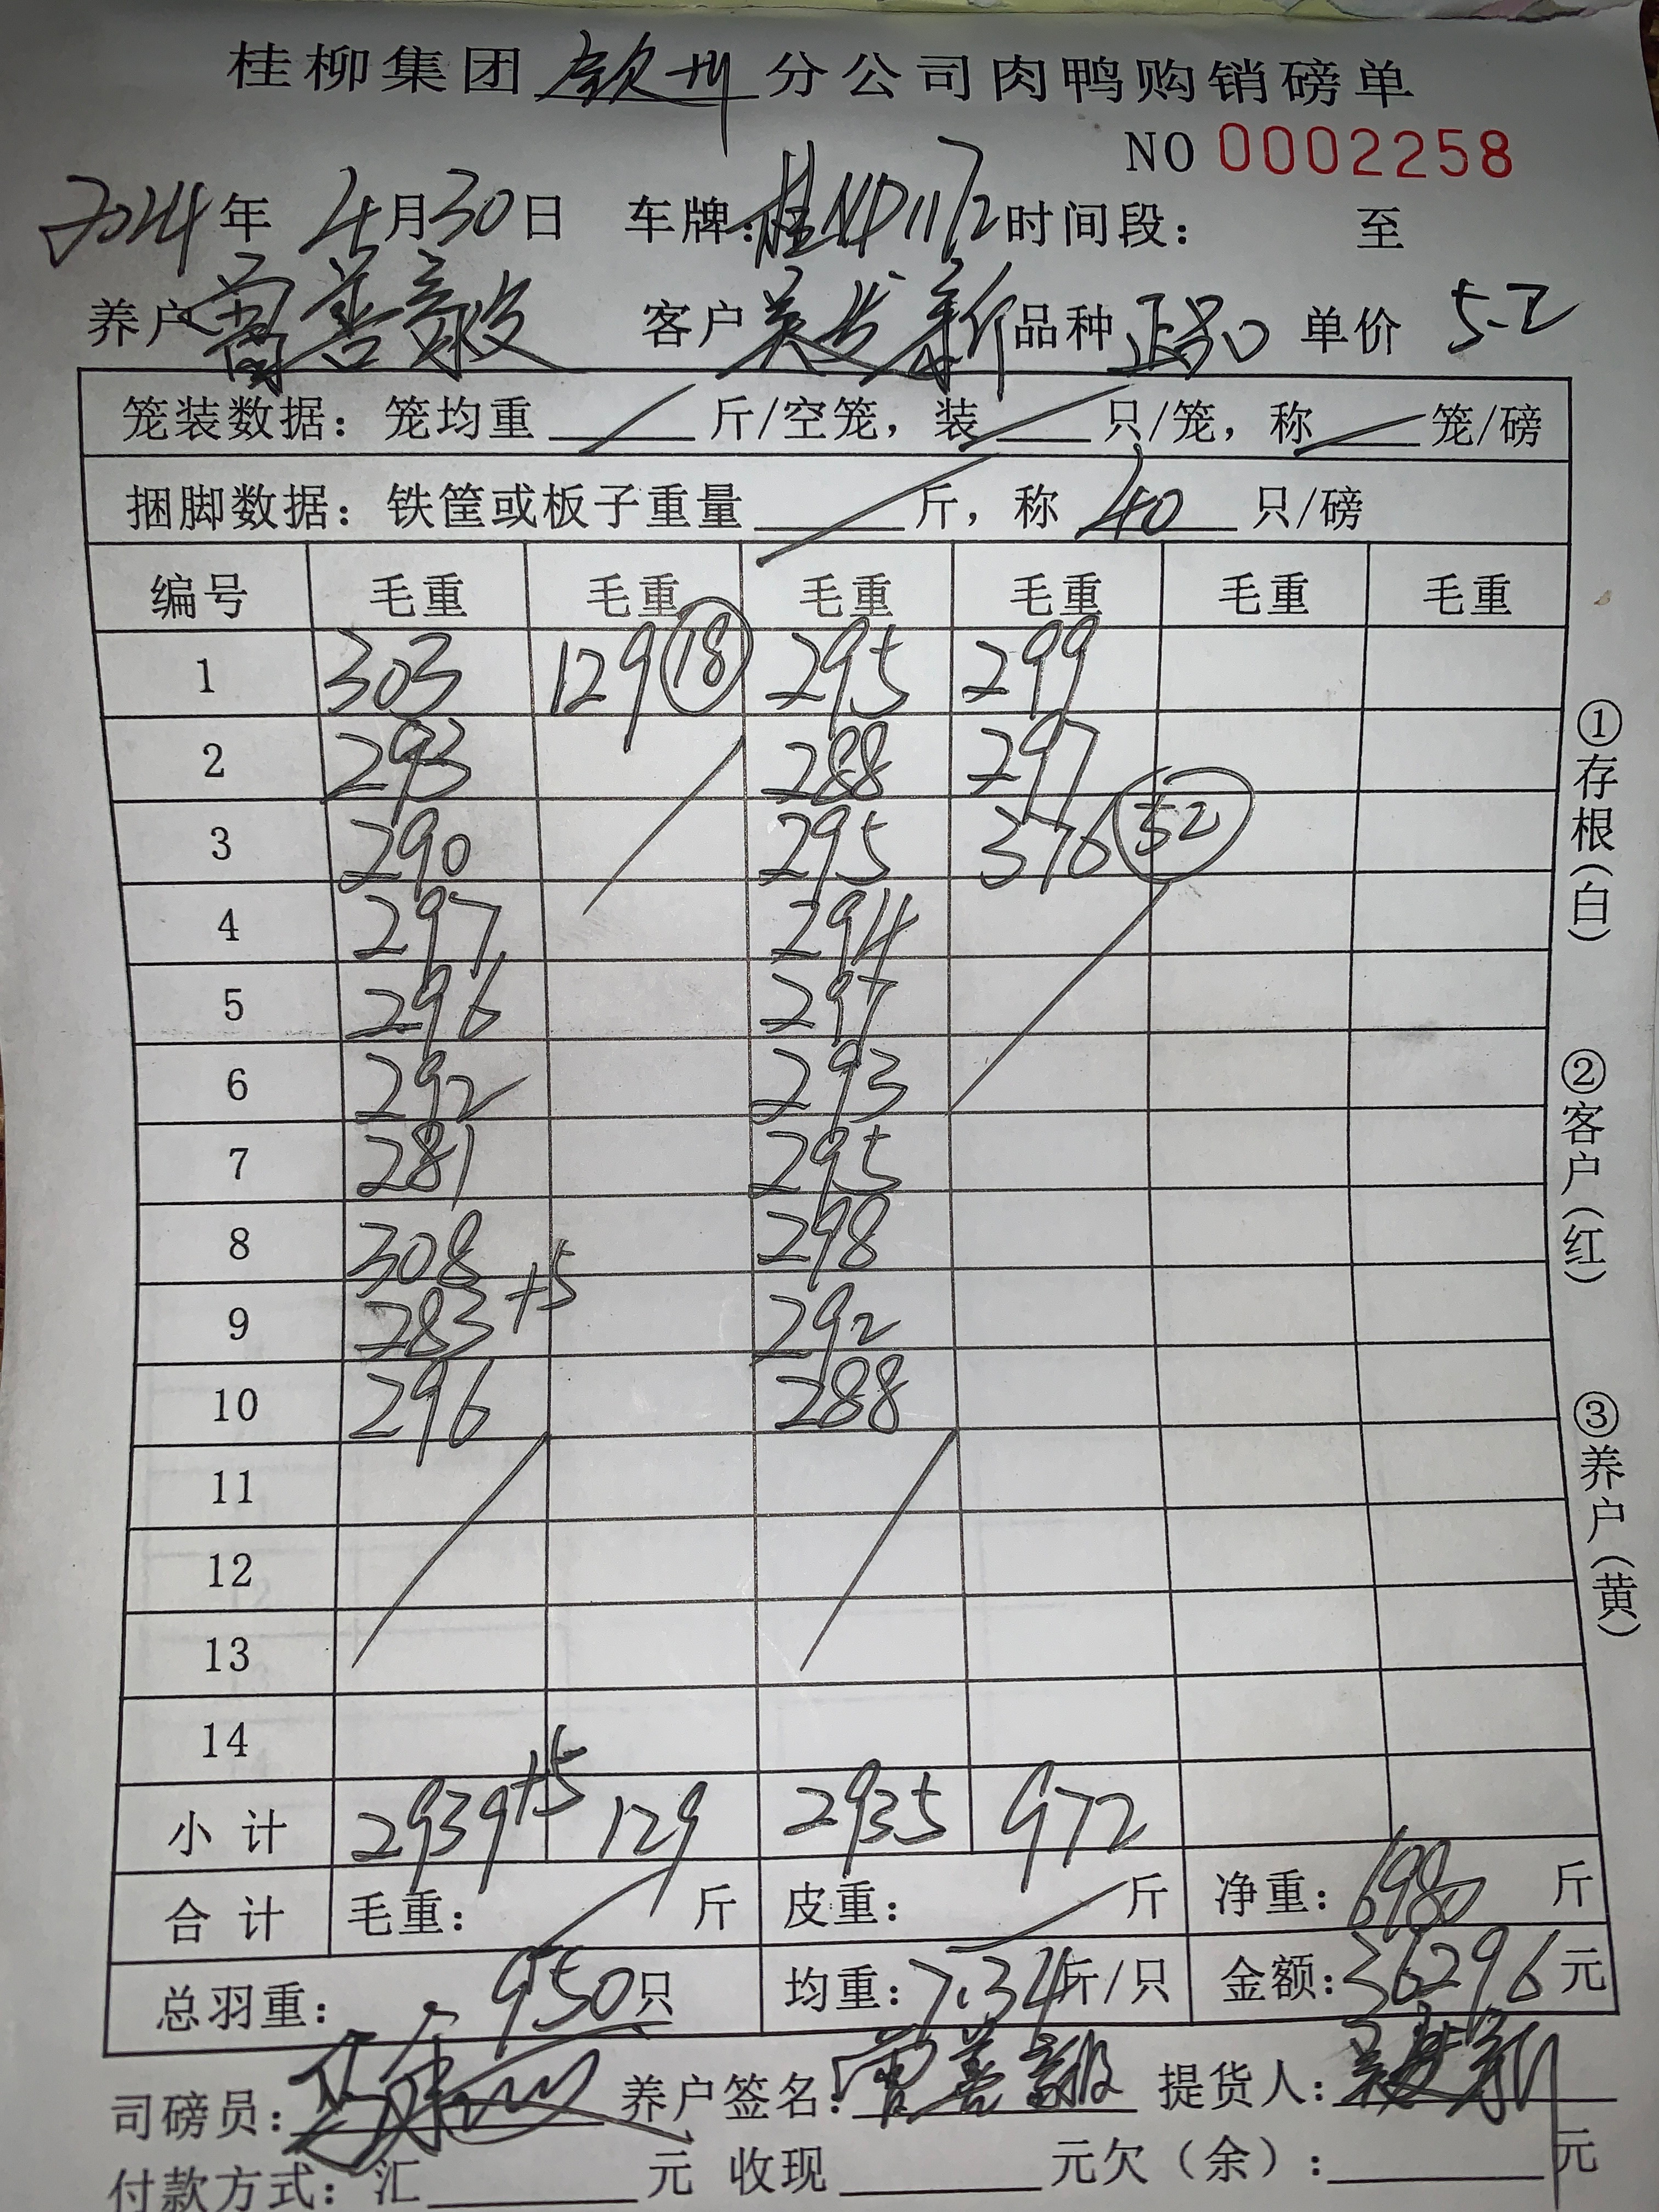 桂柳集团 钦州 分公司肉鸭购销磅单
NO 0002258
2024年 4月30日 车牌:桂ND1172 时间段: 至
养户 曾善毅 客户 吴发新 品种 正品 单价 5.2
笼装数据:笼均重 / 斤/空笼,装 / 只/笼,称 / 笼/磅
捆脚数据:铁筐或板子重量 / 斤,称 40 只/磅
编号 毛重 毛重 毛重 毛重 毛重 毛重
1 303 129 ⑱ 295 299
2 293 288 297
3 290 295 376 52
4 297 294
5 296 297
6 292 293
7 281 295
8 308 298
9 283 +5 292
10 296 288
11
12
13
14
小计 2939+5 129 2935 972
合计 毛重: 斤 皮重: 斤 净重:6980 斤
总羽重: 950只 均重:7.34斤/只 金额:36296元
司磅员: 养户签名:曾善毅 提货人:
付款方式:汇 元 收现 元欠(余): 元
①存根(白)
②客户(红)
③养户(黄)